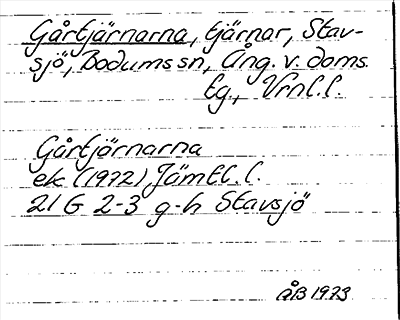 Gårtjärnarna, tjärnar, Stav-
sjö, Bodums sn, Ång. v. doms.
tg., Vrnl. l.
Gårtjärnarna
ek (1972) Jämtl. l.
21 G 2-3 g-h Stavsjö
ÅB 1973